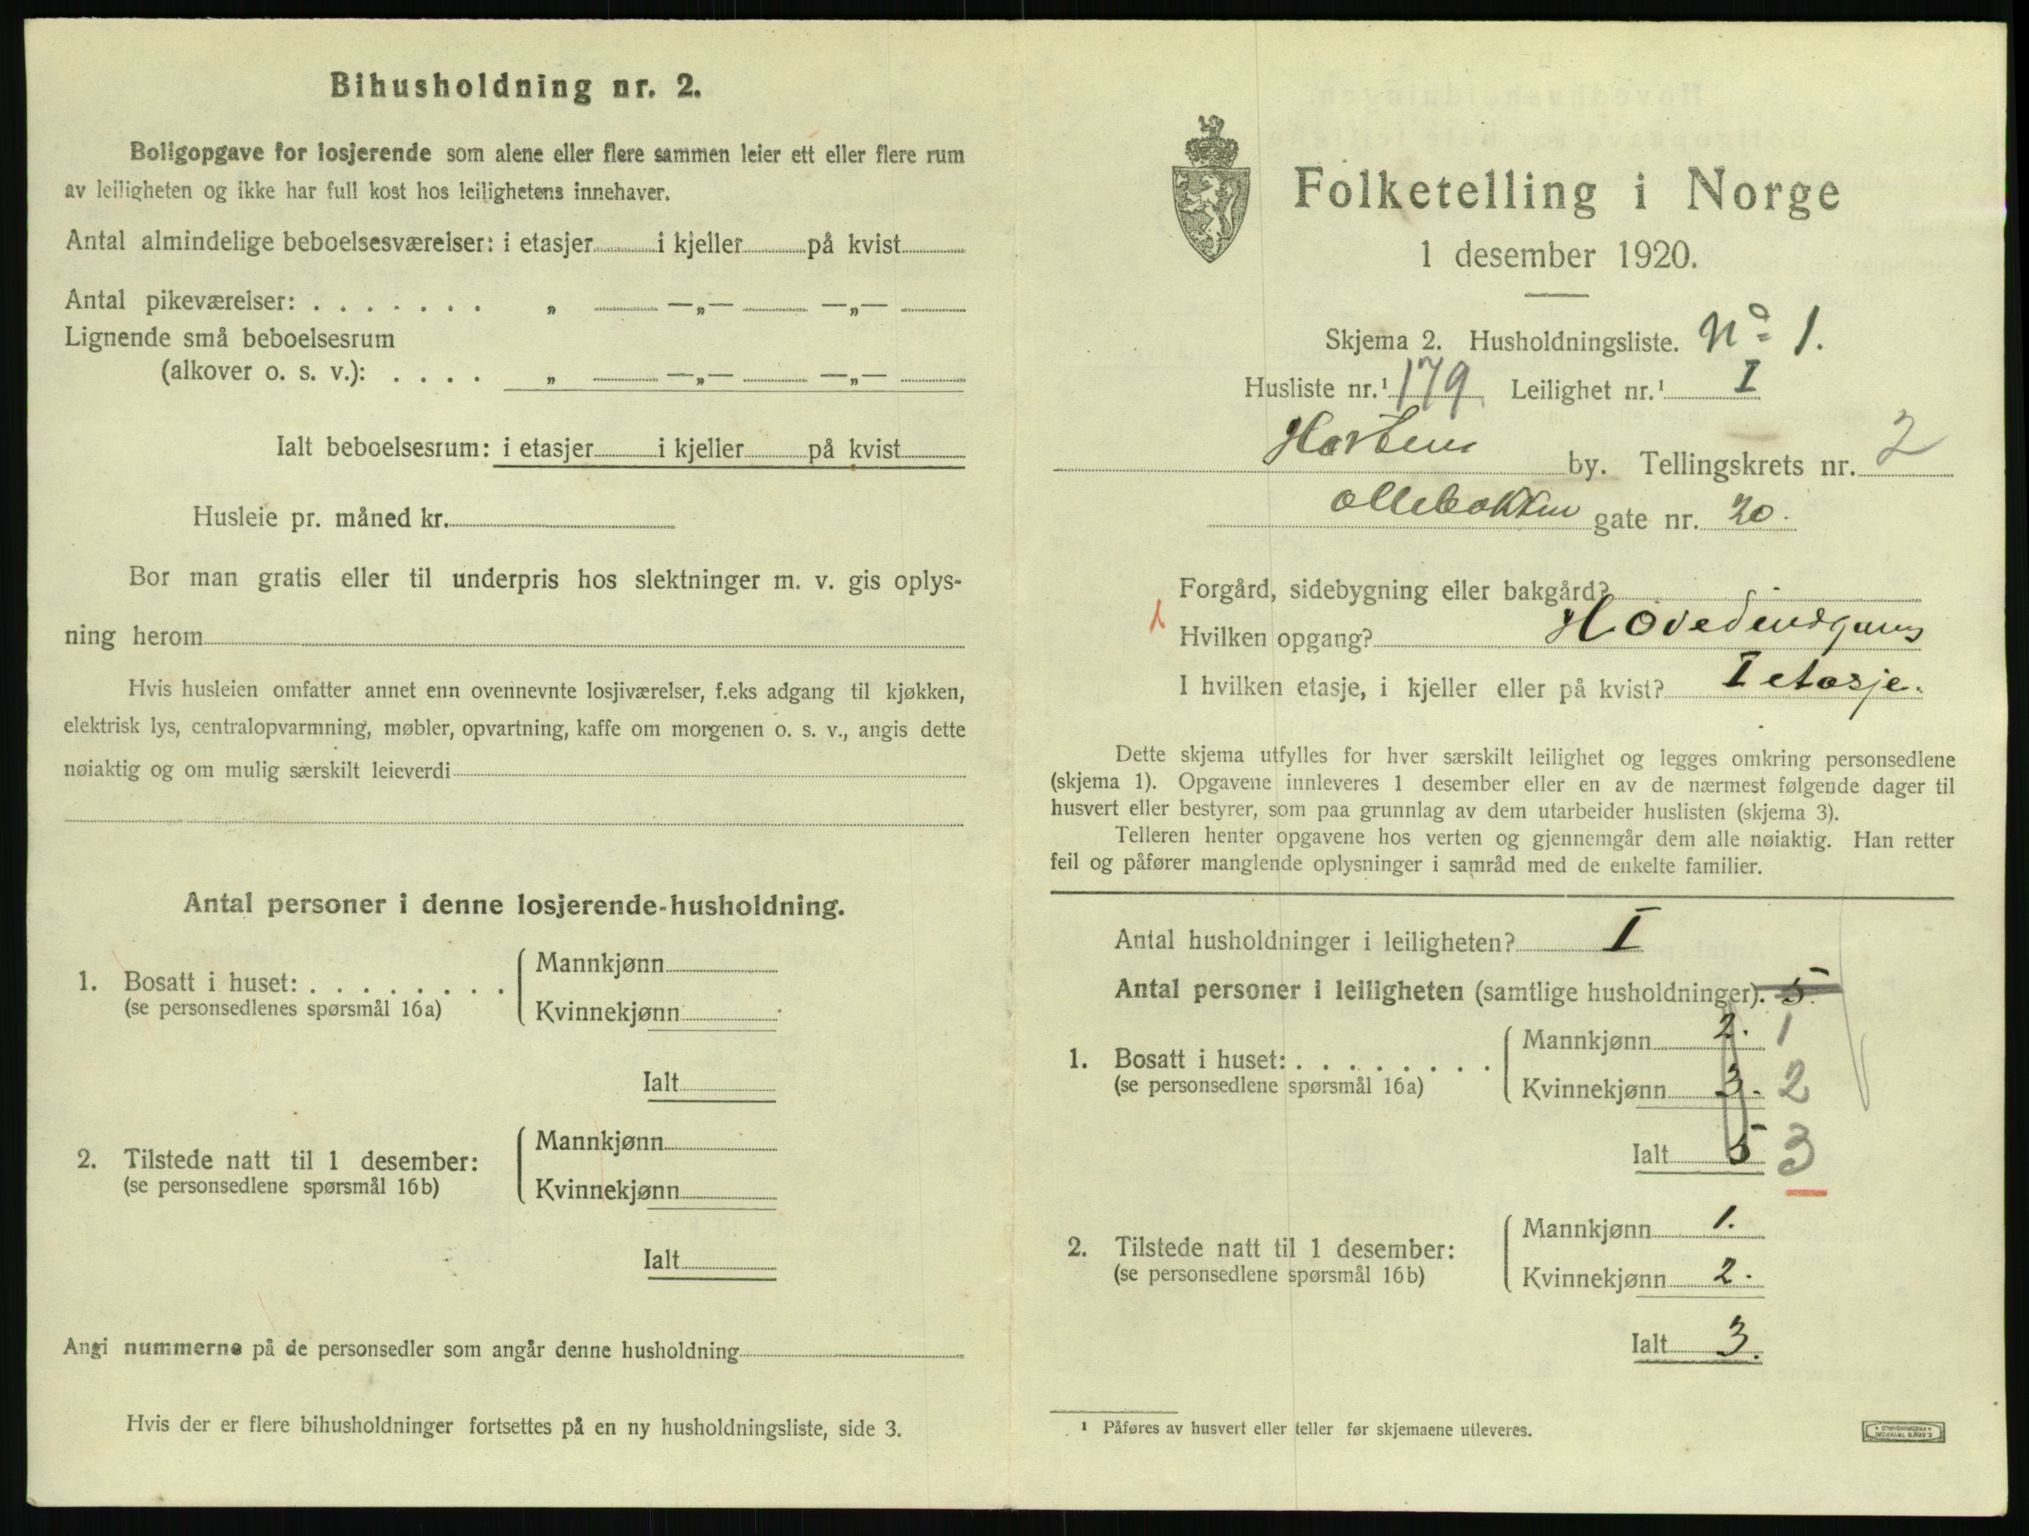 Bihusholdning nr. 2.
Boligopgave for losjerende som alene eller flere sammen leier ett eller flere rum
av leiligheten og ikke har full kost hos leilighetens innehaver.
Antal almindelige beboelsesværelser: i etasjer i kjeller på kvist
Antal pikeværelser: . . . . . . . „ —„— —„—
Lignende små beboelsesrum
(alkover o. s. v.): . . . . „ —„— —„—
Ialt beboelsesrum: i etasjer i kjeller på kvist
Husleie pr. måned kr.
Bor man gratis eller til underpris hos slektninger m. v. gis oplys-
ning herom
Hvis husleien omfatter annet enn ovennevnte losjiværelser, f.eks adgang til kjøkken,
elektrisk lys, centralopvarmning, møbler, opvartning, kaffe om morgenen o. s. v., angis dette
nøiaktig og om mulig særskilt leieverdi
Antal personer i denne losjerende-husholdning.
1. Bosatt i huset: . . . . . . . .
(se personsedlenes spørsmål 16a)
Mannkjønn
Kvinnekjønn
Ialt
2. Tilstede natt til 1 desember:
(se personsedlene spørsmål 16b)
Mannkjønn
Kvinnekjønn
Ialt
Angi nummerne på de personsedler som angår denne husholdning
Hvis der er flere bihusholdninger fortsettes på en ny husholdningsliste, side 3.
Folketelling i Norge
1 desember 1920.
Skjema 2. Husholdningsliste. No 1.
Husliste nr.¹ 179 Leilighet nr.¹ I
Horten by. Tellingskrets nr. 2
Ollebakken gate nr. 20.
Forgård, sidebygning eller bakgård?
1 Hvilken opgang? Hovedindgang
I hvilken etasje, i kjeller eller på kvist? I etasje.
Dette skjema utfylles for hver særskilt leilighet og legges omkring personsedlene
(skjema 1). Opgavene innleveres 1 desember eller en av de nærmest følgende dager til
husvert eller bestyrer, som paa grunnlag av dem utarbeider huslisten (skjema 3).
Telleren henter opgavene hos verten og gjennemgår dem alle nøiaktig. Han retter
feil og påfører manglende oplysninger i samråd med de enkelte familier.
Antal husholdninger i leiligheten? I
Antal personer i leiligheten (samtlige husholdninger). 5.
1. Bosatt i huset: . . . . . . . . .
(se personsedlene spørsmål 16a)
Mannkjønn 2. 1
Kvinnekjønn 3. 2
Ialt 5 3
2. Tilstede natt til 1 desember:
(se personsedlene spørsmål 16b)
Mannkjønn 1.
Kvinnekjønn 2.
Ialt 3.
¹ Påføres av husvert eller teller før skjemaene utleveres.